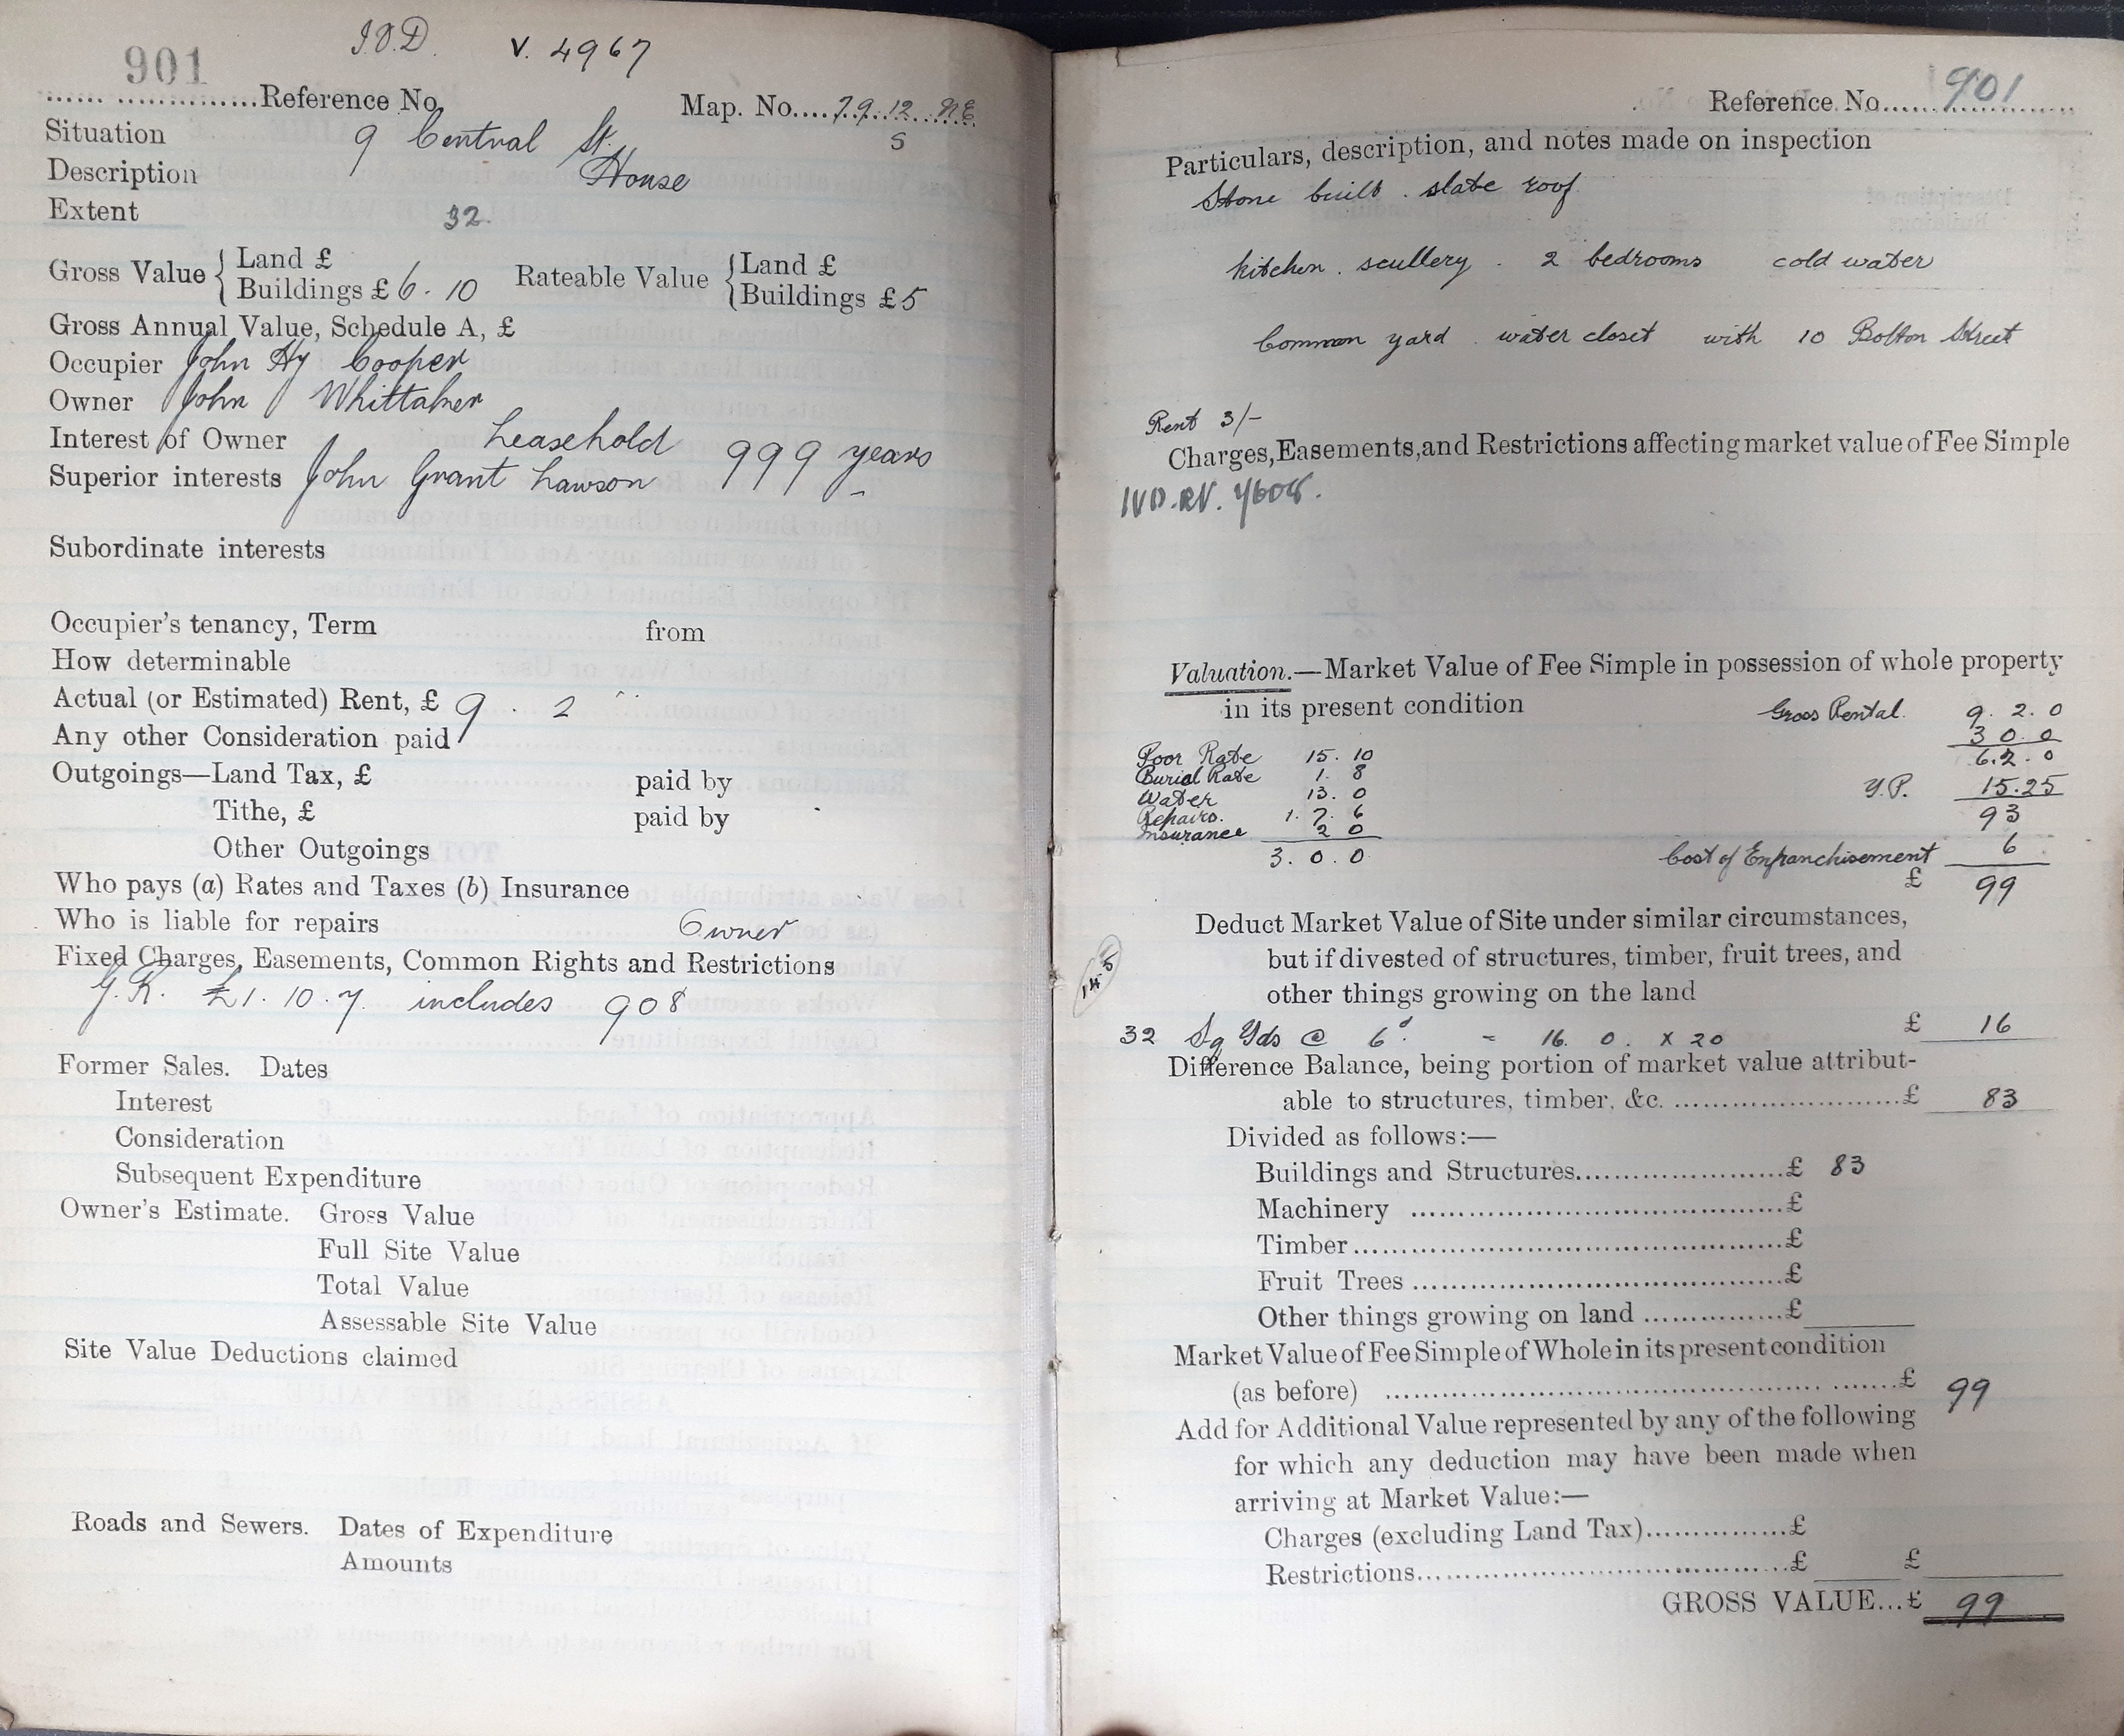 901
I.V.D. V. 4967
Reference No. Map. No. 79.12. N.E.
S
Situation 9 Central St.
Description House
Extent 32.
Gross Value { Land £
Buildings £ 6. 10
Rateable Value { Land £
Buildings £5
Gross Annual Value, Schedule A, £
Occupier John Hy Cooper
Owner John Whittaker
Interest of Owner Leasehold 999 years
Superior interests John Grant Lawson
Subordinate interests
Occupier's tenancy, Term from
How determinable
Actual (or Estimated) Rent, £ 9 . 2
Any other Consideration paid
Outgoings—Land Tax, £ paid by
Tithe, £ paid by
Other Outgoings
Who pays (a) Rates and Taxes (b) Insurance
Who is liable for repairs Owner
Fixed Charges, Easements, Common Rights and Restrictions
G.R. £1. 10. 7. includes 908
Former Sales. Dates
Interest
Consideration
Subsequent Expenditure
Owner's Estimate. Gross Value
Full Site Value
Total Value
Assessable Site Value
Site Value Deductions claimed
Roads and Sewers. Dates of Expenditure
Amounts
Reference No. 901
Particulars, description, and notes made on inspection
Stone built . slate roof.
kitchen . scullery . 2 bedrooms cold water
Common yard . water closet with 10 Bolton Street
Rent 3/-
Charges, Easements, and Restrictions affecting market value of Fee Simple
Valuation.—Market Value of Fee Simple in possession of whole property
in its present condition
Gross Rental. 9. 2. 0
3 0. 0
6. 2. 0
Y.P. 15.25
93
Cost of Enfranchisement 6
£ 99
Poor Rate 15. 10
Burial Rate 1. 8
Water 13. 0
Repairs. 1. 7. 6
Insurance 2 0
3. 0. 0
Deduct Market Value of Site under similar circumstances,
but if divested of structures, timber, fruit trees, and
other things growing on the land
14.5
32 Sq Yds @ 6d. = 16. 0. x 20 £ 16
Difference Balance, being portion of market value attribut-
able to structures, timber, &c. £ 83
Divided as follows:—
Buildings and Structures £ 83
Machinery £
Timber £
Fruit Trees £
Other things growing on land £
Market Value of Fee Simple of Whole in its present condition
(as before) £ 99
Add for Additional Value represented by any of the following
for which any deduction may have been made when
arriving at Market Value:—
Charges (excluding Land Tax) £
Restrictions £ £
GROSS VALUE...£ 99